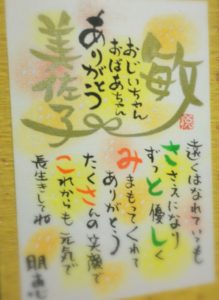 敏
おじいちゃん
おばあちゃん
ありがとう
美佐子
遠くはなれていても
ささえになり
ずっと優しく
みまもってくれて
ありがとう
たくさんの笑顔で
これからも元気で
長生きしてね